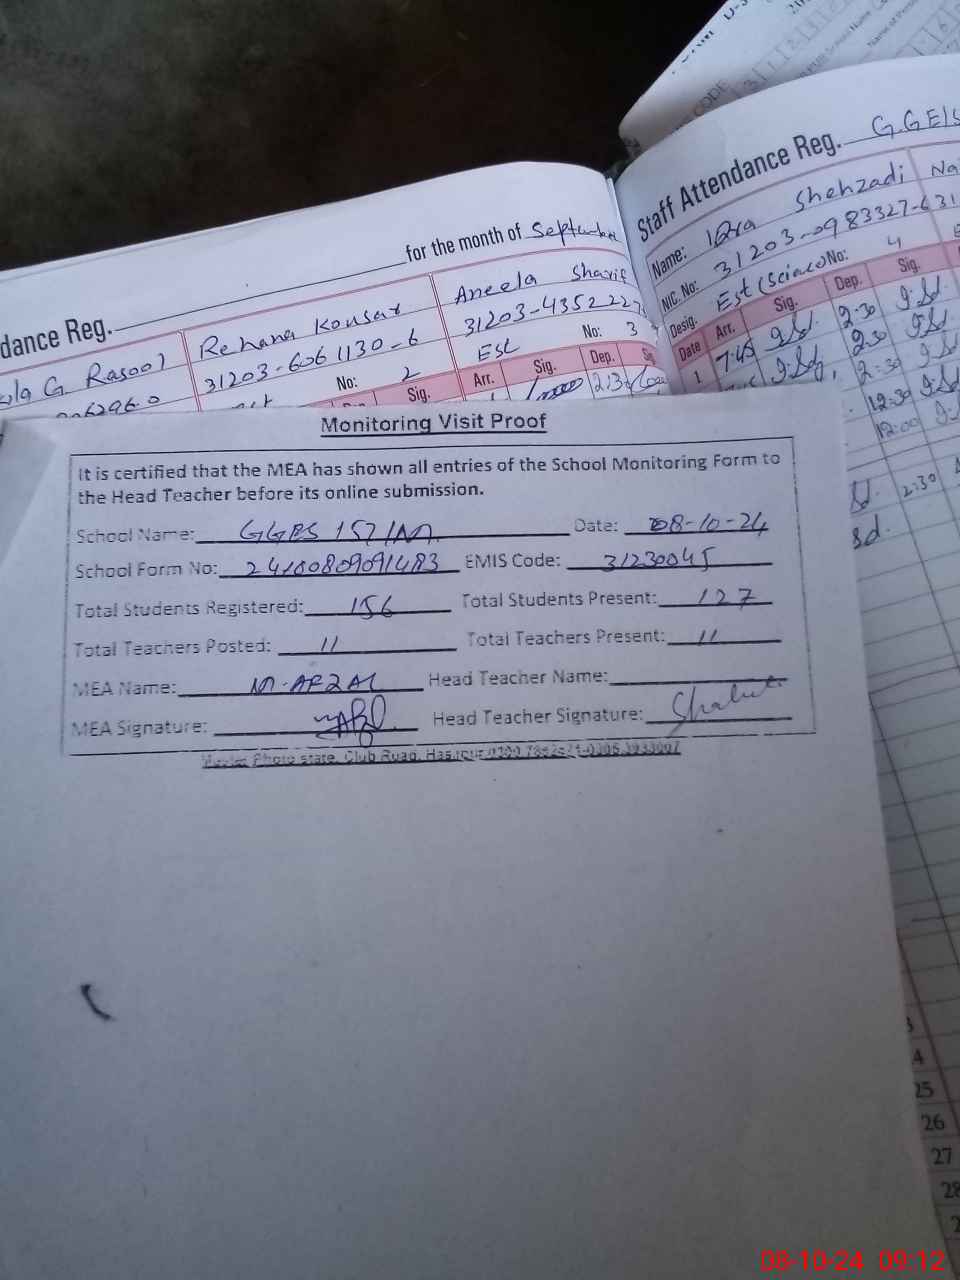 for the month of September
dance Reg.
G. Rasool
Rehana Kousar
31203-6061130-6
No: 2
Sig.
Aneela Sharif
31203-4352227
No: 3
Est
Arr. Sig. Dep.
2:3
Staff Attendance Reg. G.GE/S
Name: Iqra Shehzadi Na
NIC. No: 31203-0983327-6 31
Desig. Est (Science) No: 4
Date Arr. Sig. Dep. Sig.
1 7:45 2:30
2:30
2:30
12:30
12:00
2:30
CODE
Monitoring Visit Proof
It is certified that the MEA has shown all entries of the School Monitoring Form to
the Head Teacher before its online submission.
School Name: GGES 157/M Date: 08-10-24
School Form No: 24100809091483 EMIS Code: 31230045
Total Students Registered: 156 Total Students Present: 127
Total Teachers Posted: 11 Total Teachers Present: 11
MEA Name: M. AFZAL Head Teacher Name:
MEA Signature: Head Teacher Signature:
Photo state, Club Road,
3
4
25
26
27
28
2
08-10-24 09:12